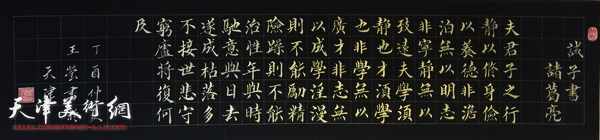 誡子書
諸葛亮
夫君子之行
靜以修身儉
以養德非澹
泊無以明志
非寧靜無以
致遠夫學須
靜也才須學
也非學無以
廣才非志無
以成學淫漫
則不能勵精
險躁則不能
治性年與時
馳意與日去
遂成枯落多
不接世悲守
窮廬將復何
及
丁酉仲
王瑩書
天津
天津美術網